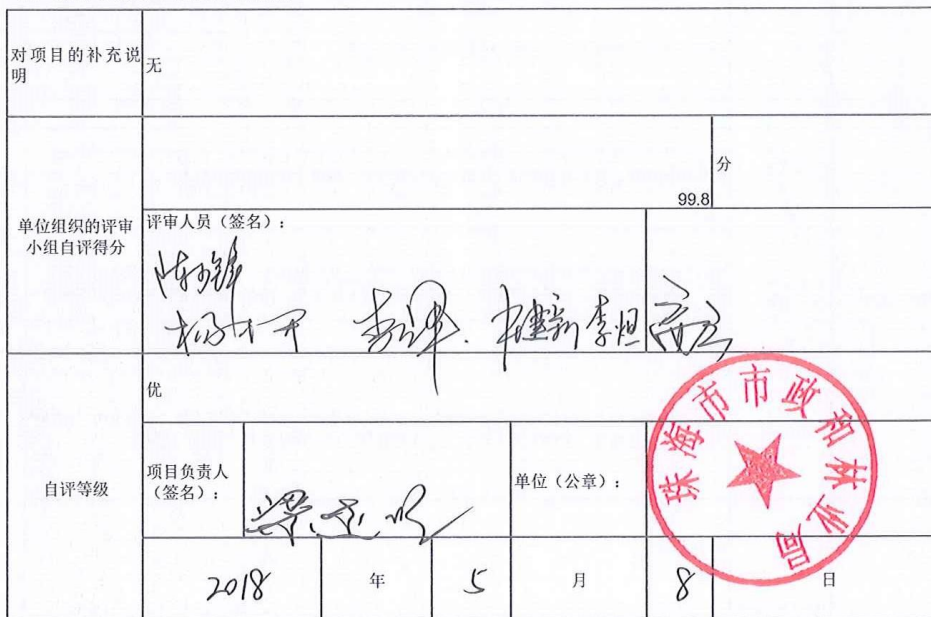 对项目的补充说明
无
99.8
分
单位组织的评审小组自评得分
评审人员（签名）：
李坦
自评等级
优
项目负责人（签名）：
单位（公章）：
珠海市市政和林业局
2018 年 5 月 8 日